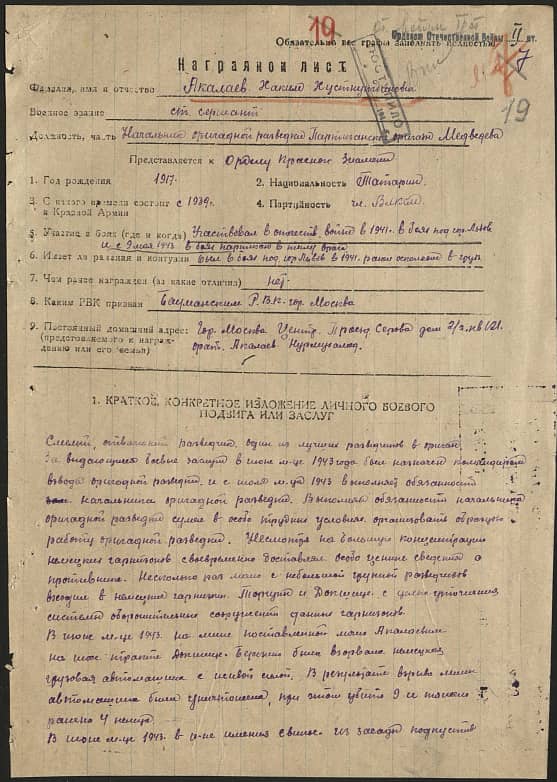 19
Орденом Отечественной Войны II ст.
Обязательно все графы заполнять полностью
7
Наградной лист
19
Фамилия, имя и отчество Акалаев Хаким
Военное звание ст. сержант
Должность, часть Начальник бригадной разведки Партизанской бригады Медведева
Представляется к Ордену Красное Знамя
1. Год рождения 1917. 2. Национальность Татарин.
3. С какого времени состоит в Красной Армии с 1939г. 4. Партийность чл. ВЛКСМ
5. Участие в боях (где и когда) Участвовал в отечеств войне в 1941г. в боях под гор. Львов
и с 9 мая 1943. в боях партизанс в тылу врага
6. Имеет ли ранения и контузии был в боях под гор. Львов в 1941. ранен осколком в грудь
7. Чем ранее награжден (за какие отличия) нет.
8. Каким РВК призван Бауманским Р.В.К. гор. Москва
9. Постоянный домашний адрес: Гор. Москва Центр. Проезд Серова дом 2/7. кв 121.
(представляемого к награждению или его семьи) брат. Акалаев
1. КРАТКОЕ, КОНКРЕТНОЕ ИЗЛОЖЕНИЕ ЛИЧНОГО БОЕВОГО
ПОДВИГА ИЛИ ЗАСЛУГ
Смелый, отважный разведчик, один из лучших разведчиков в бригаде.
За выдающиеся боевые заслуги в июне м-це 1943 года был назначен командиром
взвода бригадной разведки, и с июля м-ца 1943 выполняет обязанности
начальника бригадной разведки. Выполняя обязанности начальника
бригадной разведки сумел в особо трудных условиях организовать образцов
работу бригадной разведки. Несмотря на большую концентрацию
немецких гарнизонов своевременно доставлял особо ценные сведения о
противнике. Несколько раз лично с небольшой группой разведчиков
входил в немецкие гарнизоны и Докшицы, с целью уточнения
системы оборонительных сооружений данных гарнизонов.
В июне м-це 1943. на мине поставленной лично Акалаевым
на шос тракте Докшицы-Березино была взорвана немецкая
грузовая автомашина с живой силой. В результате взрыва мины
автомашина была уничтожена, при этом убито 9 и тяжело
ранено 4 немца.
В июне м-це 1943. в р-не имения из засады подпустив